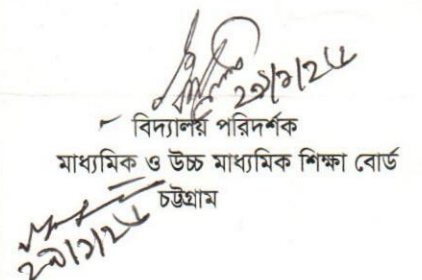 ২৯/১/২৫
বিদ্যালয় পরিদর্শক
মাধ্যমিক ও উচ্চ মাধ্যমিক শিক্ষা বোর্ড
চট্টগ্রাম
২৯/১/২৫